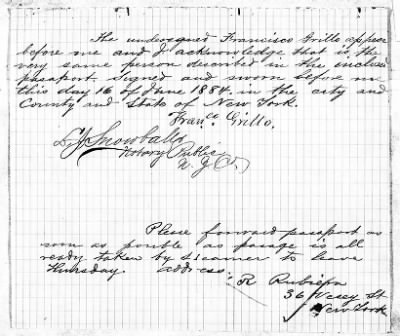 The undersigned Francisco Grillo appear
before me and I acknowledge that is the
very same person described in the inclosed
passport signed and sworn before me
this day 16 of June 1884. in the city and
County and State of New York.
Franco Grillo.
Snowball
Notary Public
N. Y. Co.
Please forward passport as
soon as posible as pasage is all
ready taken by steamer to leave
Thursday. address:
R
36 Vesey St
New York